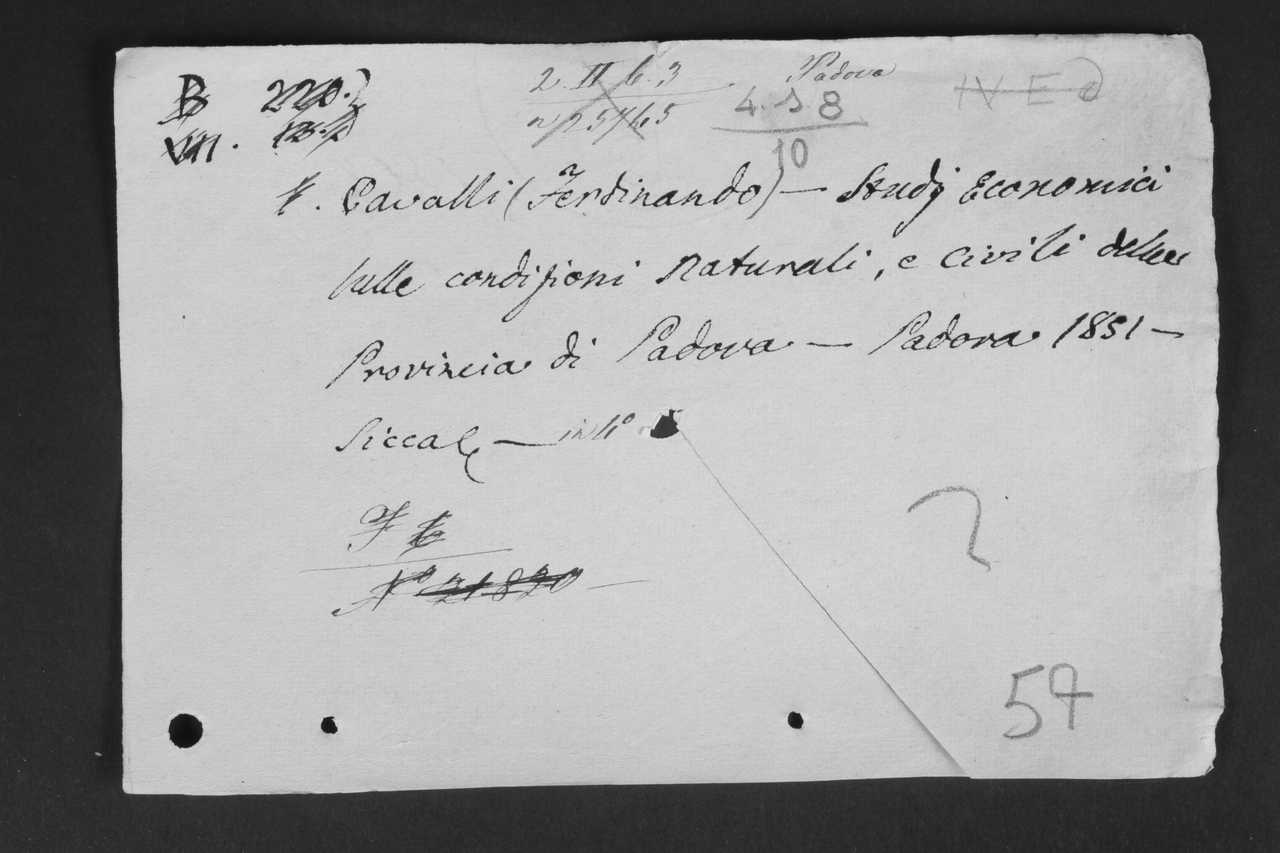 B 220.
VII.
2. II 6. 3
n 25765
Padova
4. S. 8
10
IV E
4. Cavalli (Ferdinando) — Studj Economici
sulle condizioni Naturali, e civili della
Provincia di Padova — Padova 1851 —
Sicca — in 4°
F
N° 21820
57